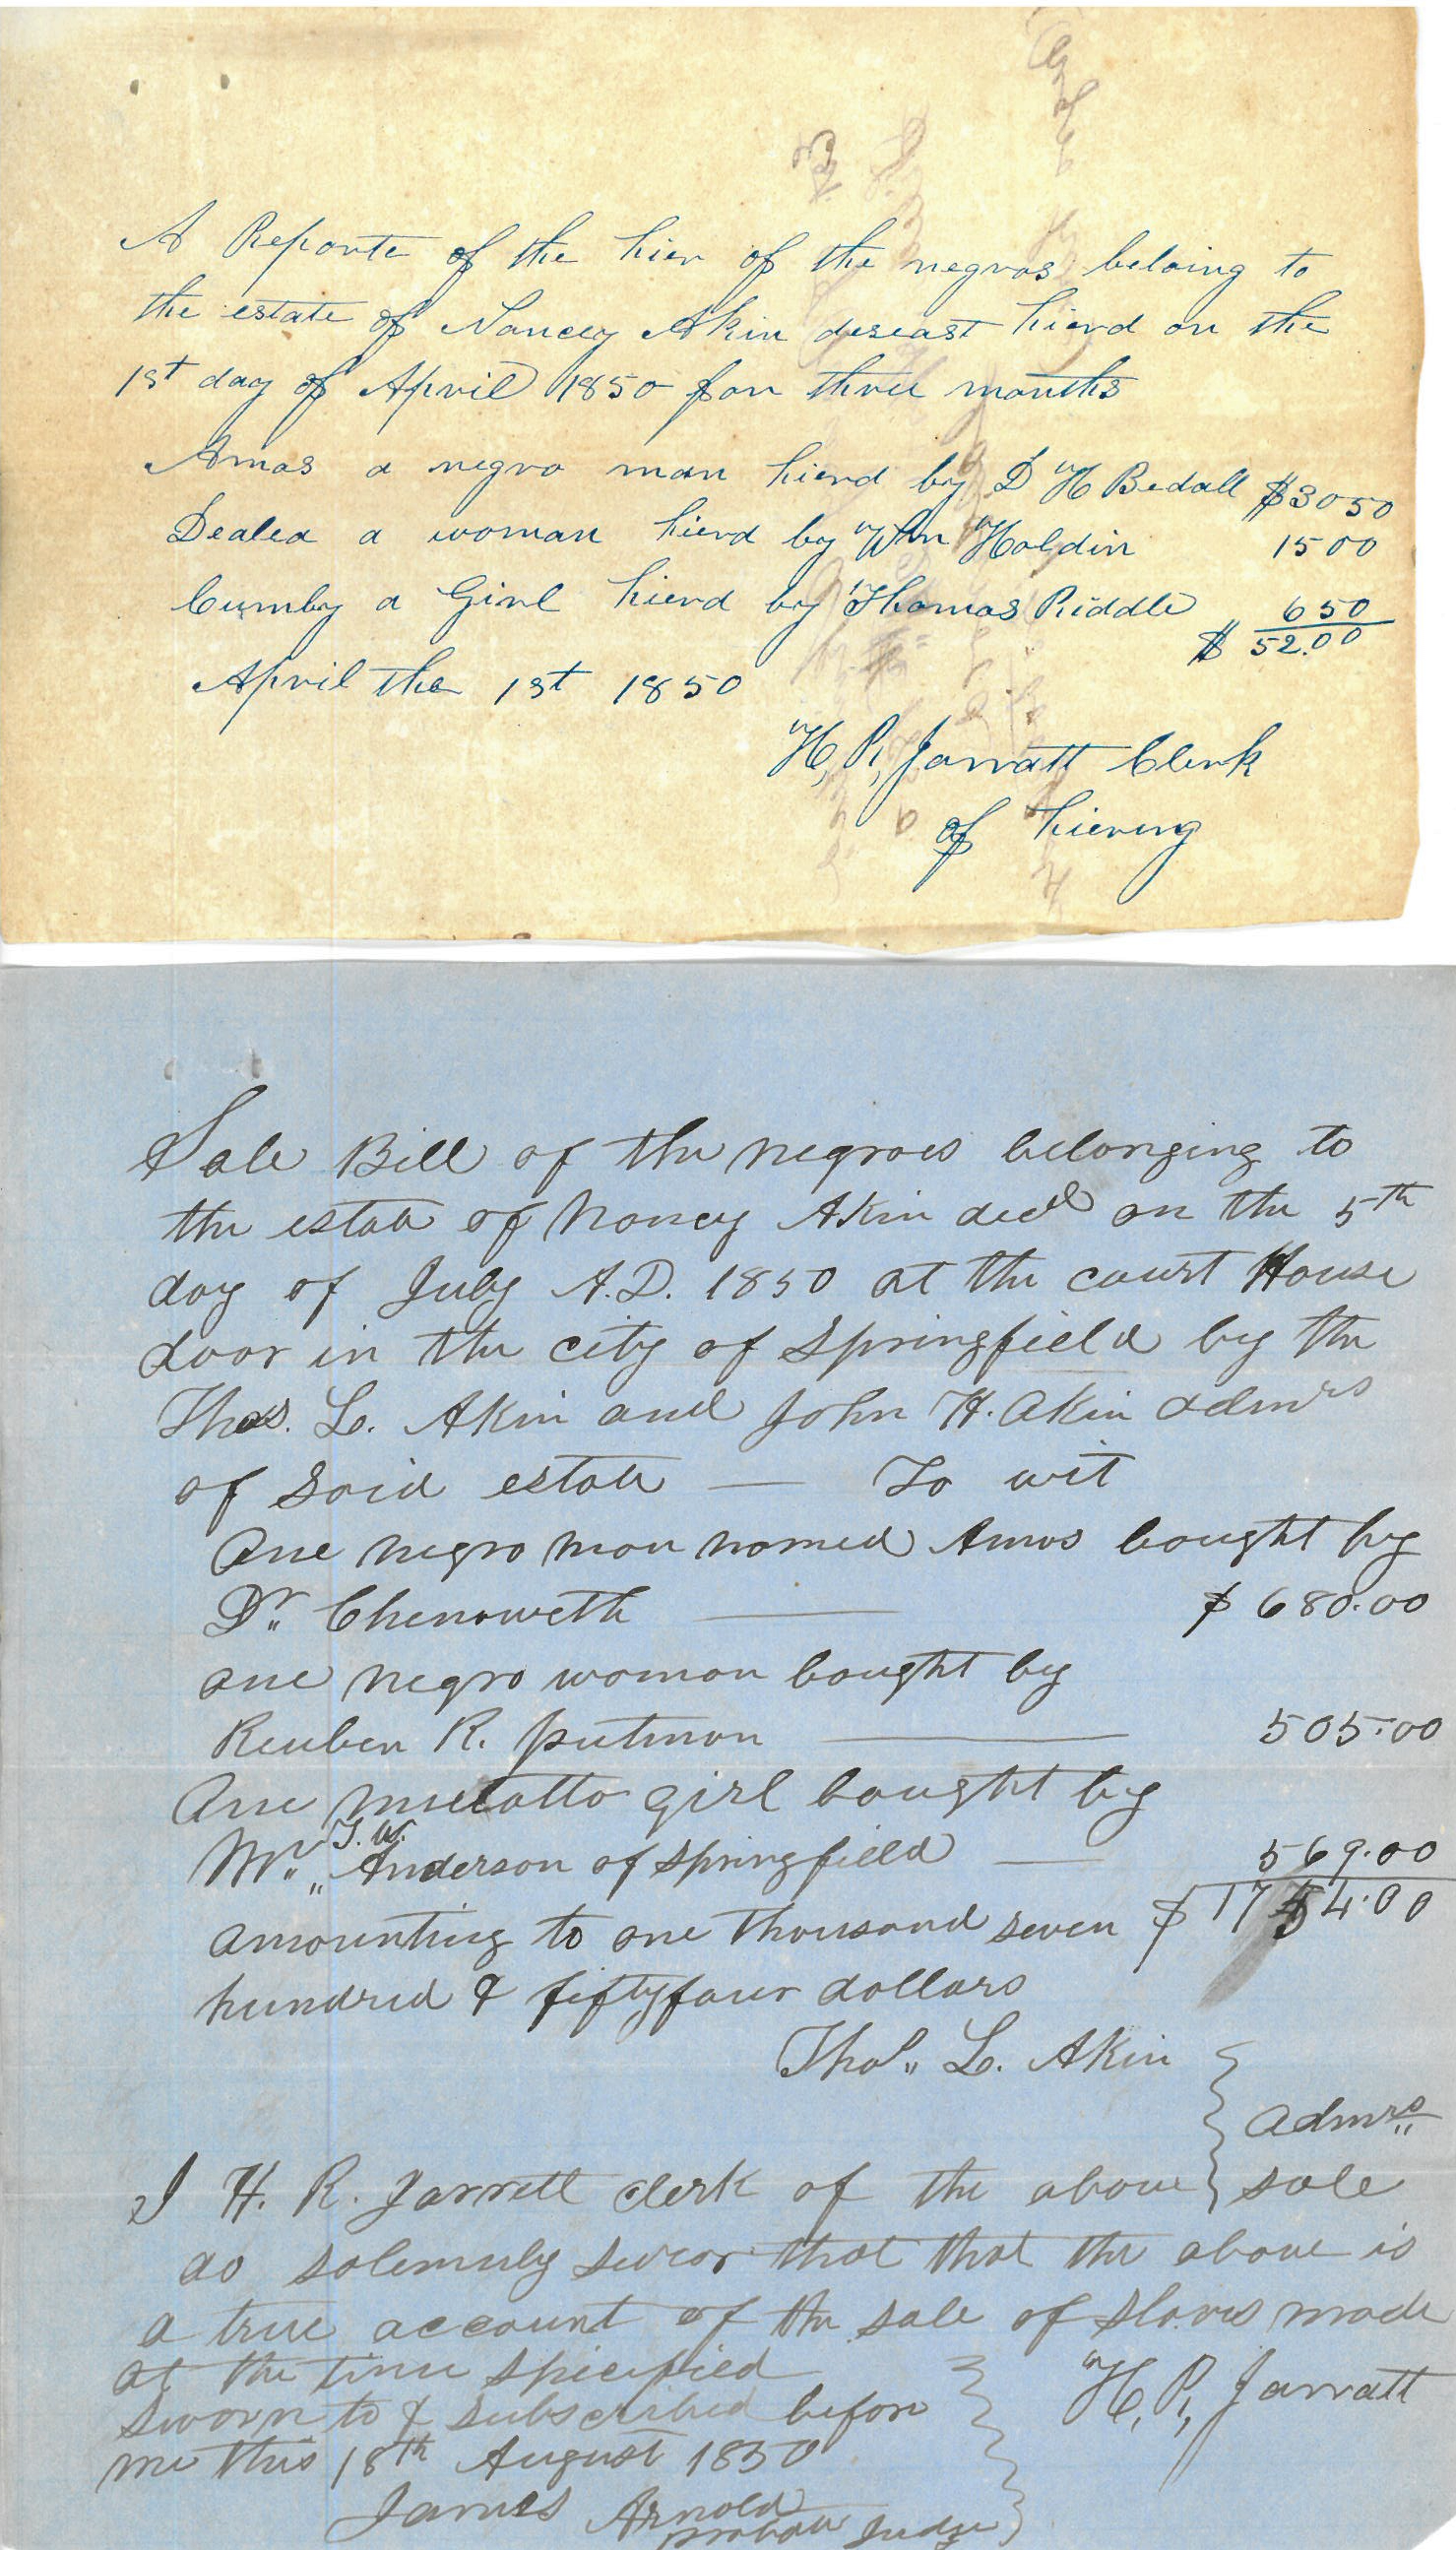 A Reporte of the hier of the negros beloing to
the estate of Nancey Akin deseast hierd on the
1st day of April 1850 for three months
Amos a negro man hierd by D H Bedall $30 50
Dealea a woman hierd by Wm Holdin 15 00
Cumby a Girl hierd by Thomas Riddle 6 50
$ 52.00
April the 1st 1850
H, R, Jarratt Clerk
of hiering
Sale Bill of the negroes belonging to
the estate of Nancy Akin decd on the 5th
day of July A.D. 1850 at the court House
door in the city of Springfield by the
Thos. L. Akin and John H. Akin admrs
of said estate — To wit
One negro man named Amos bought by
Dr. Chenoweth — $ 680.00
one negro woman bought by
Reuben R. putman — 505.00
One mulatto girl bought by
Mr. J. W. Anderson of Springfield — 569.00
amounting to one thousand seven $ 1754.00
hundred & fiftyfour dollars
Thos. L. Akin
Admrs
I H. R. Jarrett clerk of the above sale
do solemnly swear that that the above is
a true account of the sale of slaves made
at the time specified
H, R, Jarratt
Sworn to & subscribed before
me this 18th August 1850
James Arnold
probate Judge